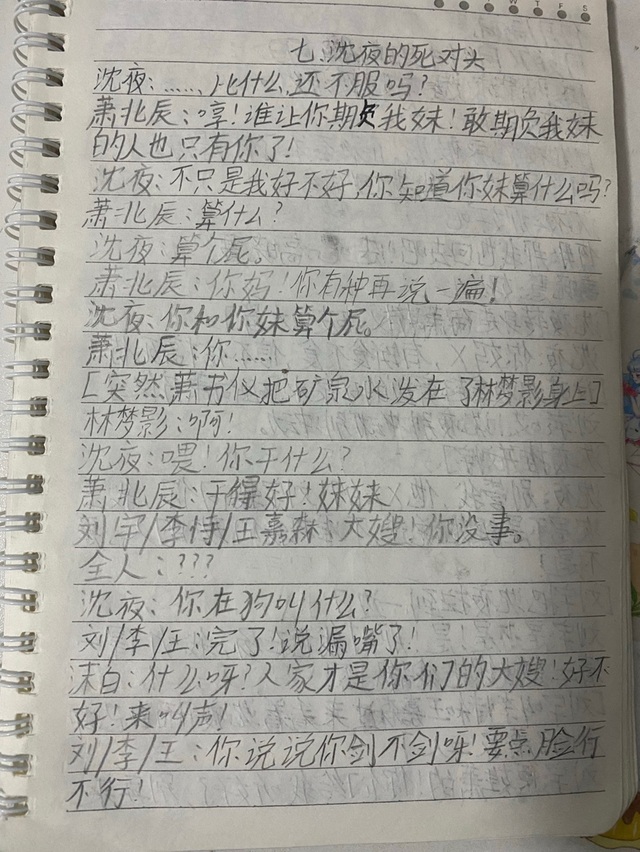 七、沈夜的死对头
沈夜：……，比什么，还不服吗？
萧北辰：哼！谁让你期负我妹！敢期负我妹
的人也只有你了！
沈夜：不只是我好不好，你知道你妹算什么吗？
萧北辰：算什么？
沈夜：算个屁。
萧北辰：你妈！你有种再说一遍！
沈夜：你和你妹算个屁。
萧北辰：你……
[突然，萧书仪把矿泉水泼在了林梦影身上]
林梦影：啊！
沈夜：喂！你干什么？
萧北辰：干得好！妹妹
刘宇/李恃/王嘉森：大嫂！你没事。
全人：???
沈夜：你在狗叫什么？
刘/李/王：完了！说漏嘴了！
末白：什么呀？人家才是你们的大嫂！好不
好！来叫声！
刘/李/王：你说说你剑不剑呀！要点脸行
不行！